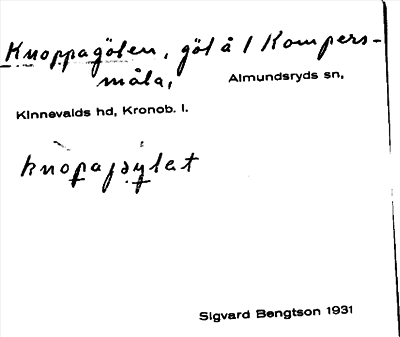 Knoppagölen, göl å 1 Kompers-
måla, Almundsryds sn,
Kinnevalds hd, Kronob. l.
Sigvard Bengtson 1931